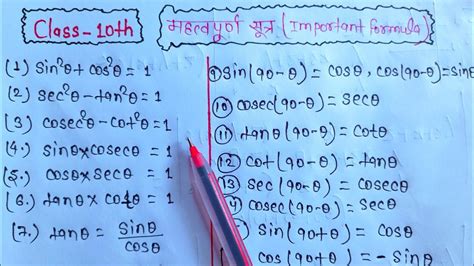 Class-10th
महत्वपूर्ण सूत्र (Important formula)
(1) sin²θ + cos²θ = 1
(2) sec²θ - tan²θ = 1
(3) cosec²θ - cot²θ = 1
(4.) sinθ × cosecθ = 1
(5.) cosθ × secθ = 1
(6.) tanθ × cotθ = 1
(7.) tanθ = sinθ / cosθ
⑨ sin(90-θ) = cosθ, cos(90-θ) = sinθ
⑩ cosec(90-θ) = secθ
⑪ tan(90-θ) = cotθ
⑫ cot(90-θ) = tanθ
⑬ sec(90-θ) = cosecθ
cosec(90-θ) = secθ
sin(90+θ) = cosθ
cos(90+θ) = -sinθ